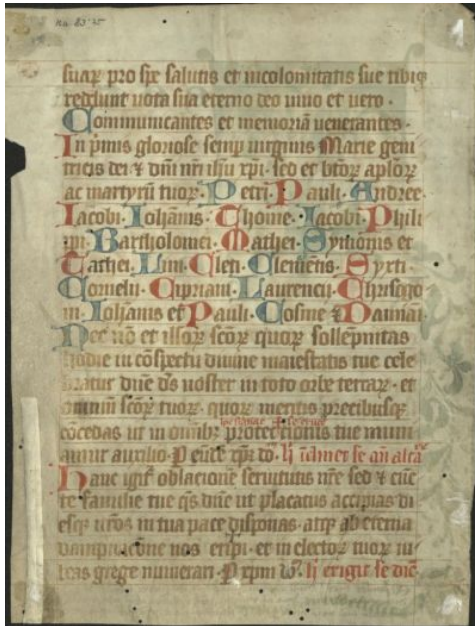 suaꝝ pro spe salutis et incolomitatis sue tibiqꝫ
reddunt uota sua eterno deo uiuo et uero ·
Communicantes et memoriā uenerantes ·
In p̄mis gloriose semp uirginis Marie geni
tricis dei ⁊ dnī nr̄i ihu xp̄i · sed et btōꝝ aplōꝝ
ac martyrū tuoꝝ · Petri · Pauli · Andree ·
Iacobi · Iohānis · Thome · Iacobi · Phili
pi · Bartholomei · Mathei · Symonis et
Tathei · Lini · Cleti · Clemētis · Syxti ·
Cornelii · Cipriani · Laurencii · Chrisogo
ni · Iohānis et Pauli · Cosme ⁊ Damiani ·
Nec nō et illoꝝ scōꝝ quoꝝ sollēpnitas
hodie in cōspectu diuine maiestatis tue cele
bratur dn̄e ds̄ noster in toto orbe terraꝝ · et
omniū scōꝝ tuoꝝ · quoꝝ meritis precibusqꝫ
cōcedas ut in omnibꝫ protectionis tue muni
amur auxilio · P eūdē xp̄m
Hanc igit oblacionē seruitutis nr̄e sed ⁊ cūc
te familie tue qs̄ dn̄e ut placatus accipias di
esqꝫ nr̄os in tua pace disponas · atqꝫ ab eterna
dampnacōne nos eripi · et in electoꝝ tuoꝝ iu
beas grege numerari · P xpm erigit se